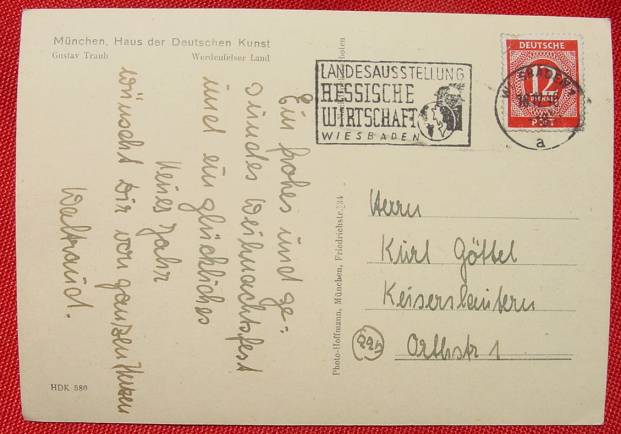 München, Haus der Deutschen Kunst
Gustav Traub Werdenfelser Land
LANDESAUSSTELLUNG
HESSISCHE
WIRTSCHAFT
WIESBADEN
DEUTSCHE
12
PFENNIG
POST
WIESBADEN
a
Ein frohes und ge-
sundes Weihnachtsfest
und ein glückliches
Neues Jahr
wünscht Dir von ganzen Herzen
Waltraud.
Photo-Hoffmann, München, Friedrichstr. 34
Herrn
Kurt Göttel
Keiserslautern
(22b)
HDK 580